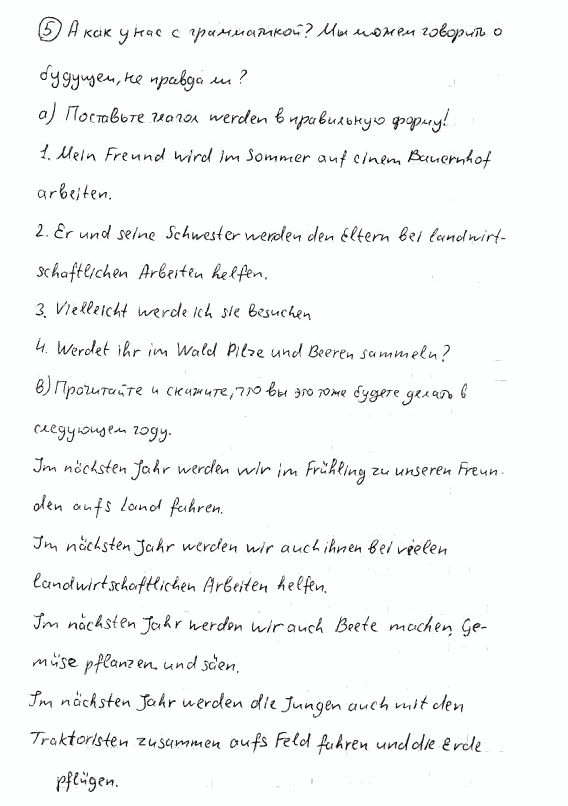 ⑤ А как у нас с грамматикой? Мы можем говорить о
будущем, не правда ли?
а) Поставьте глагол werden в правильную форму!
1. Mein Freund wird im Sommer auf einem Bauernhof
arbeiten.
2. Er und seine Schwester werden den Eltern bei landwirt-
schaftlichen Arbeiten helfen.
3. Vielleicht werde ich sie besuchen
4. Werdet ihr im Wald Pilze und Beeren sammeln?
в) Прочитайте и скажите, что вы это тоже будете делать в
следующем году.
Im nächsten Jahr werden wir im Frühling zu unseren Freun-
den aufs Land fahren.
Im nächsten Jahr werden wir auch ihnen bei vielen
landwirtschaftlichen Arbeiten helfen.
Im nächsten Jahr werden wir auch Beete machen, Ge-
müse pflanzen und säen.
Im nächsten Jahr werden die Jungen auch mit den
Traktoristen zusammen aufs Feld fahren und die Erde
pflügen.